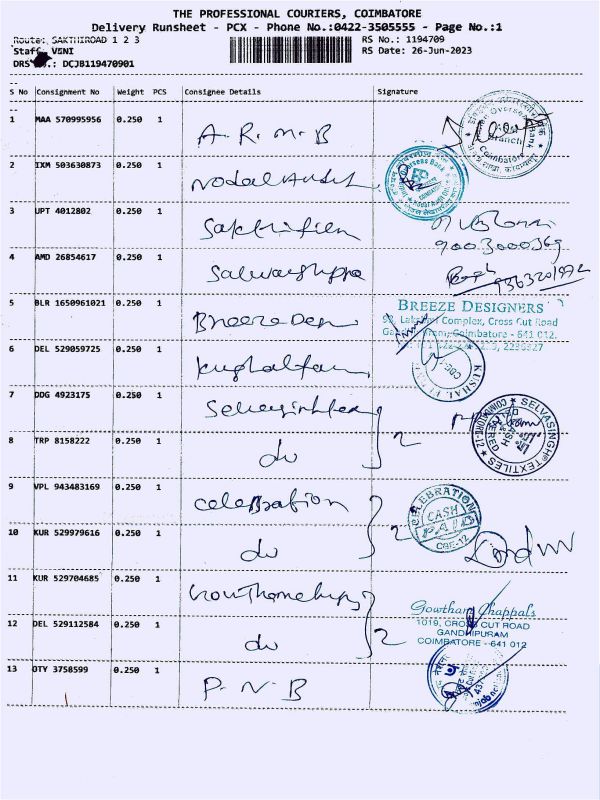 THE PROFESSIONAL COURIERS, COIMBATORE
Delivery Runsheet - PCX - Phone No.:0422-3505555 - Page No.:1
Route: SAKTHIROAD 1 2 3 RS No.: 1194709
Staff: VENI RS Date: 26-Jun-2023
DRS No.: DCJB119470901
S No Consignment No Weight PCS Consignee Details Signature
1 MAA 570995956 0.250 1 A. R. M. B
2 IXM 503630873 0.250 1 Nodal Audit
3 UPT 4012802 0.250 1
9003000369
4 AMD 26854617 0.250 1
9363201992
5 BLR 1650961021 0.250 1 Breeze Den
BREEZE DESIGNERS
Complex, Cross Cut Road
Coimbatore - 641 012.
6 DEL 529059725 0.250 1
7 DDG 4923175 0.250 1
SELVASINGH TEXTILES
COIMBATORE-12
8 TRP 8158222 0.250 1 do 2
9 VPL 943483169 0.250 1 celebration
CELEBRATION
CASH
PAID
CBE-12
10 KUR 529979616 0.250 1 do 2
11 KUR 529704685 0.250 1
Gowtham Chappals
1019, CROSS CUT ROAD
GANDHIPURAM
COIMBATORE - 641 012
12 DEL 529112584 0.250 1 do 2
13 OTY 3758599 0.250 1 P. N. B